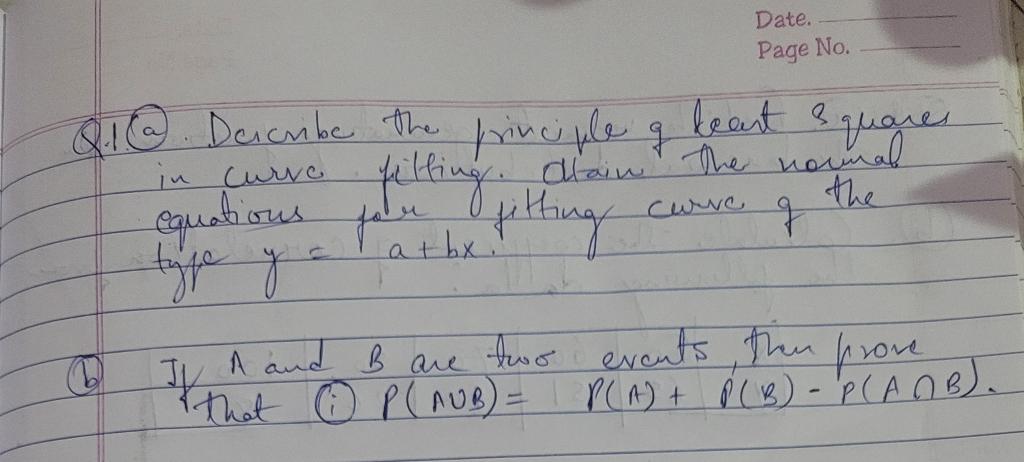 Date.
Page No.
Q.1 (a). Describe the principle of least squares
in curve fitting. Obtain the normal
equations for fitting curve of the
type y = a + bx.
(b) If A and B are two events, then prove
that (i) P(A∪B) = P(A) + P(B) - P(A∩B).